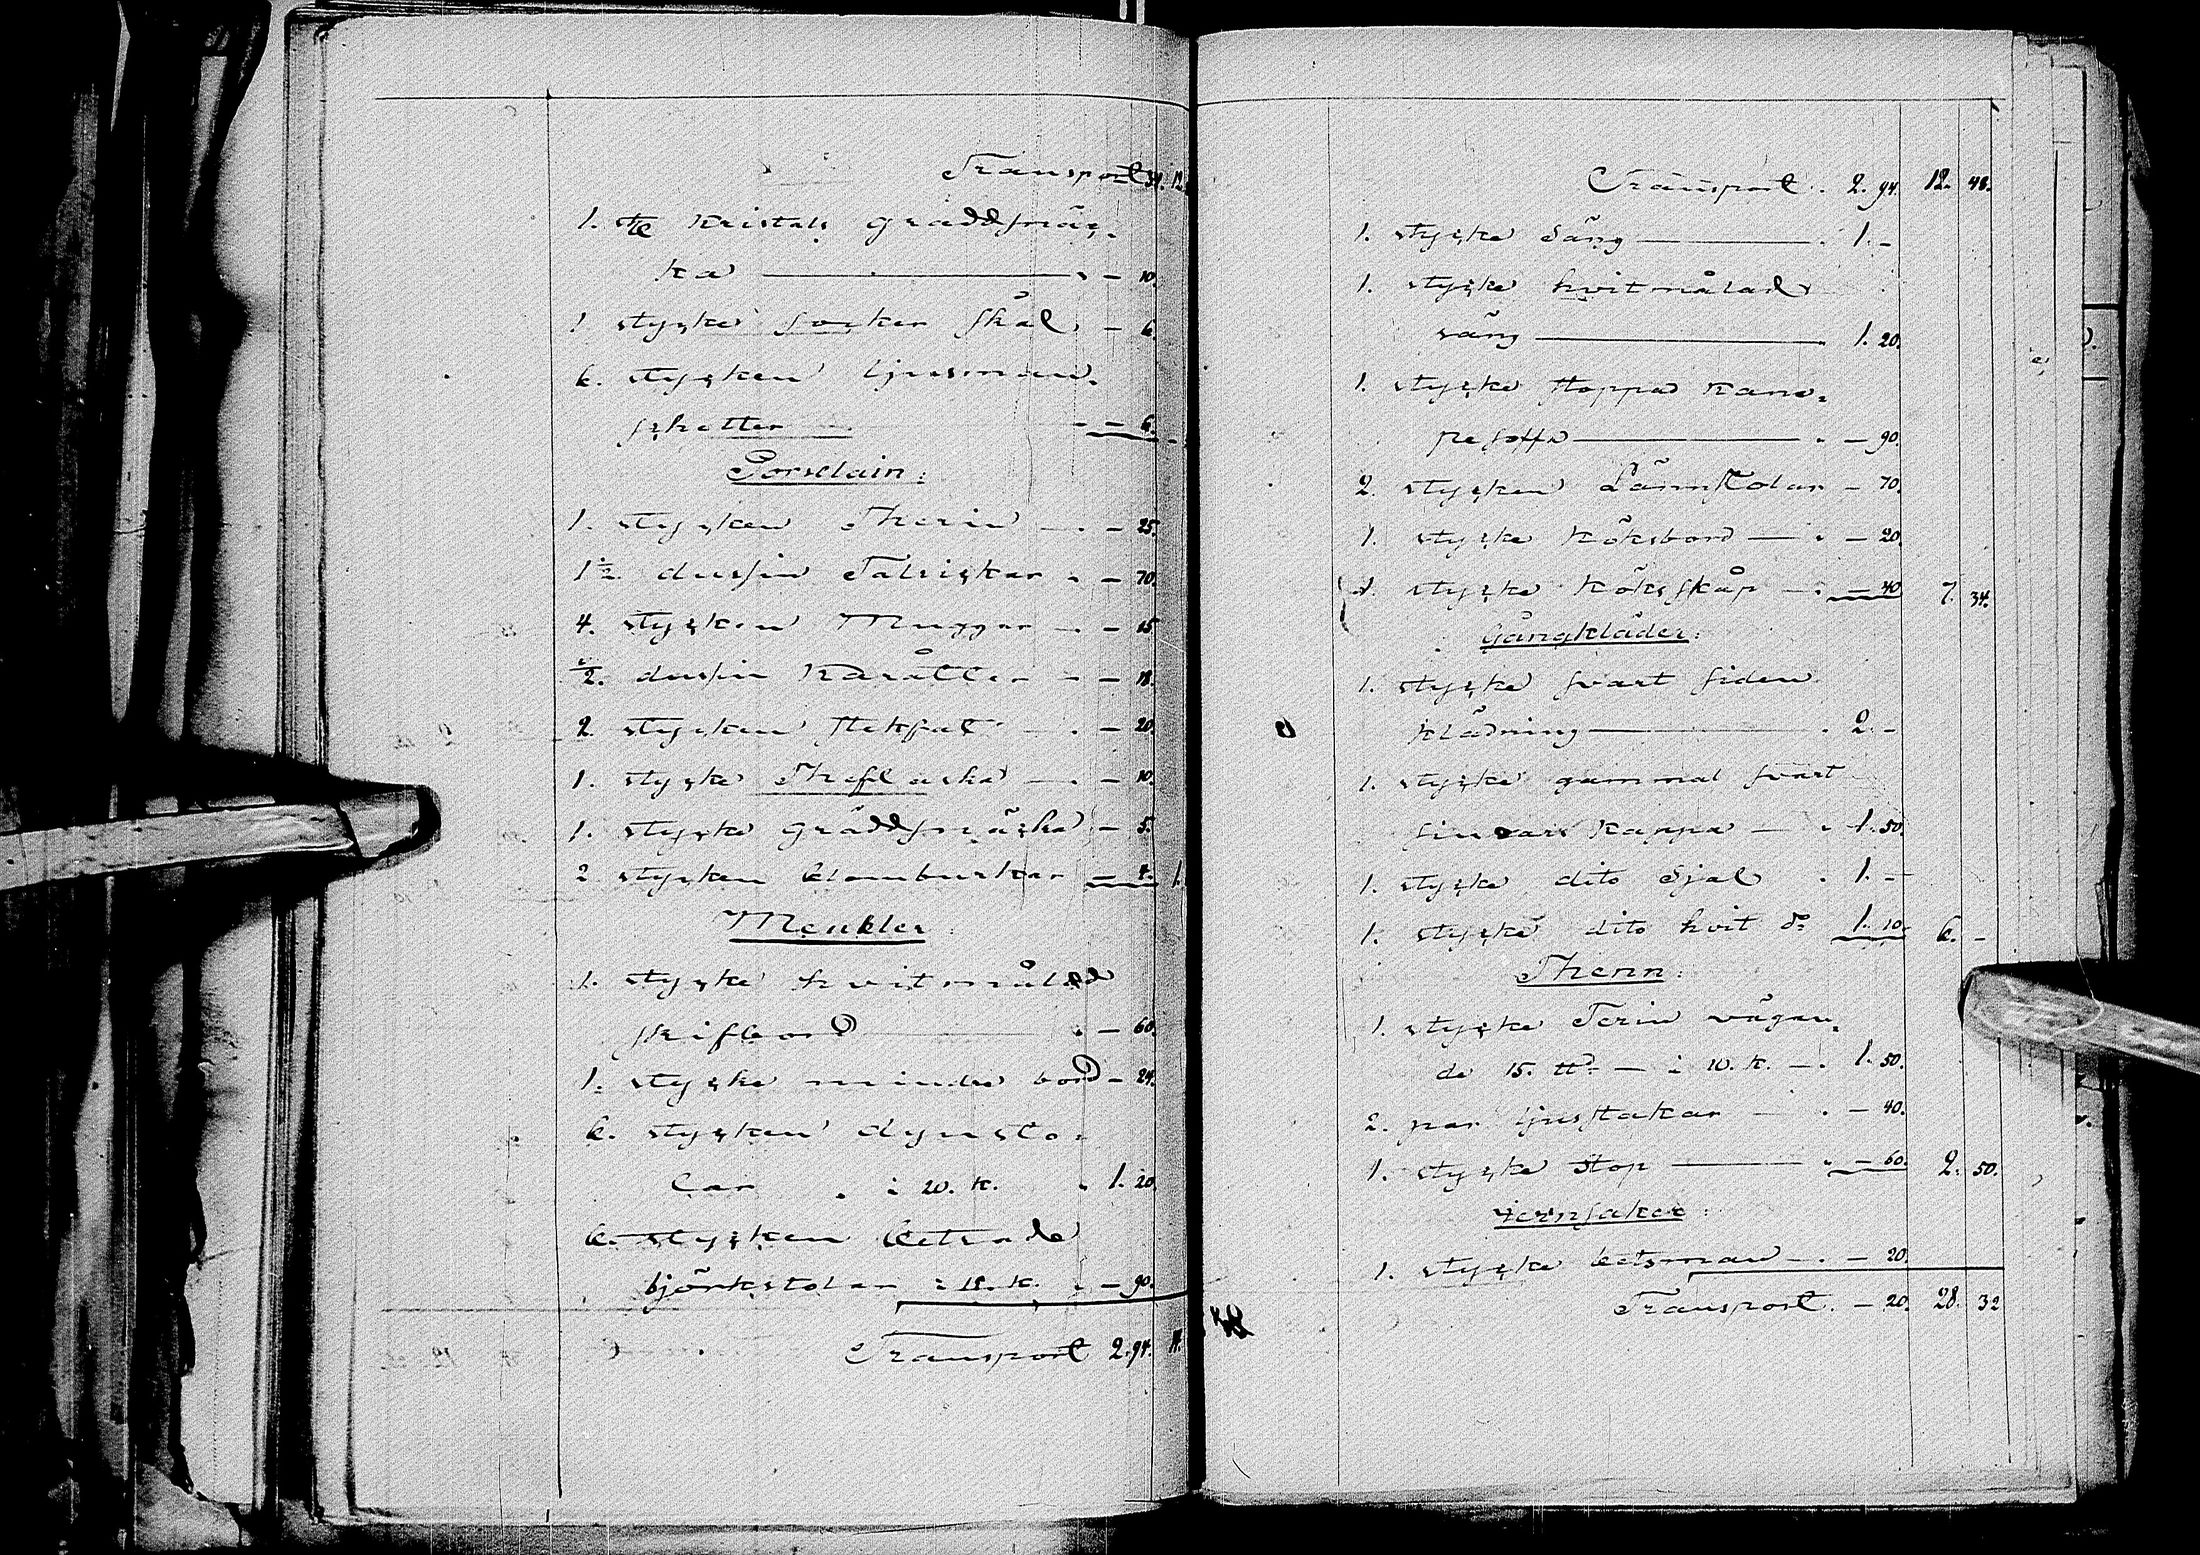 Transport 34. 12.
1. st kristals gräddsnäc-
ka — 10.
1 stycke socker skål — 6.
6. stycken ljusman-
schetter — 6.
Porselain:
1. stycken Therin — 25.
1½ dussin Talrickar — 70.
4. stycken Muggar — 15
½. dussin Karåtter — 18.
2 stycken stekfat — 20.
1. stycke Theflaska — 10.
1. stycke gräddsnäcka — 5.
2 stycken blomburkar — 1.
Meubler
1. stycke hvitmålad
skifbord — 60.
1. stycke mindre bord — 24.
6. stycken dynsto-
lar . i 20. k. . 1. 20
6. stycken betsade
björkstolar i 15. k. . — 90.
Transport 2. 94.
Transport. 2. 94. 12. 48.
1. stycke Säng — 1. –
1. stycke hvitmålad
säng — 1. 20.
1. stycke stoppad kana-
pe soffa — 90.
2. stycken Länstolar — 70.
1. stycke Köksbord — 20.
1. stycke Köksskåp — 40 7. 34.
Gångkläder:
1. stycke svart siden
klädning — 2. –
1. stycke gammal svart
kappa — 1. 50
1. stycke dito Sjal . 1. –
1. stycke dito hvit do 1. 10. 6. –
Thenn:
1. stycke Terin vägan-
de 15. ℔ — i 10. k. — 1. 50.
2. par ljusstakar — 40.
1. stycke Stop — 60. 2. 50.
Jernsaker:
1. stycke betsman — 20.
Transport. — 20. 28. 32